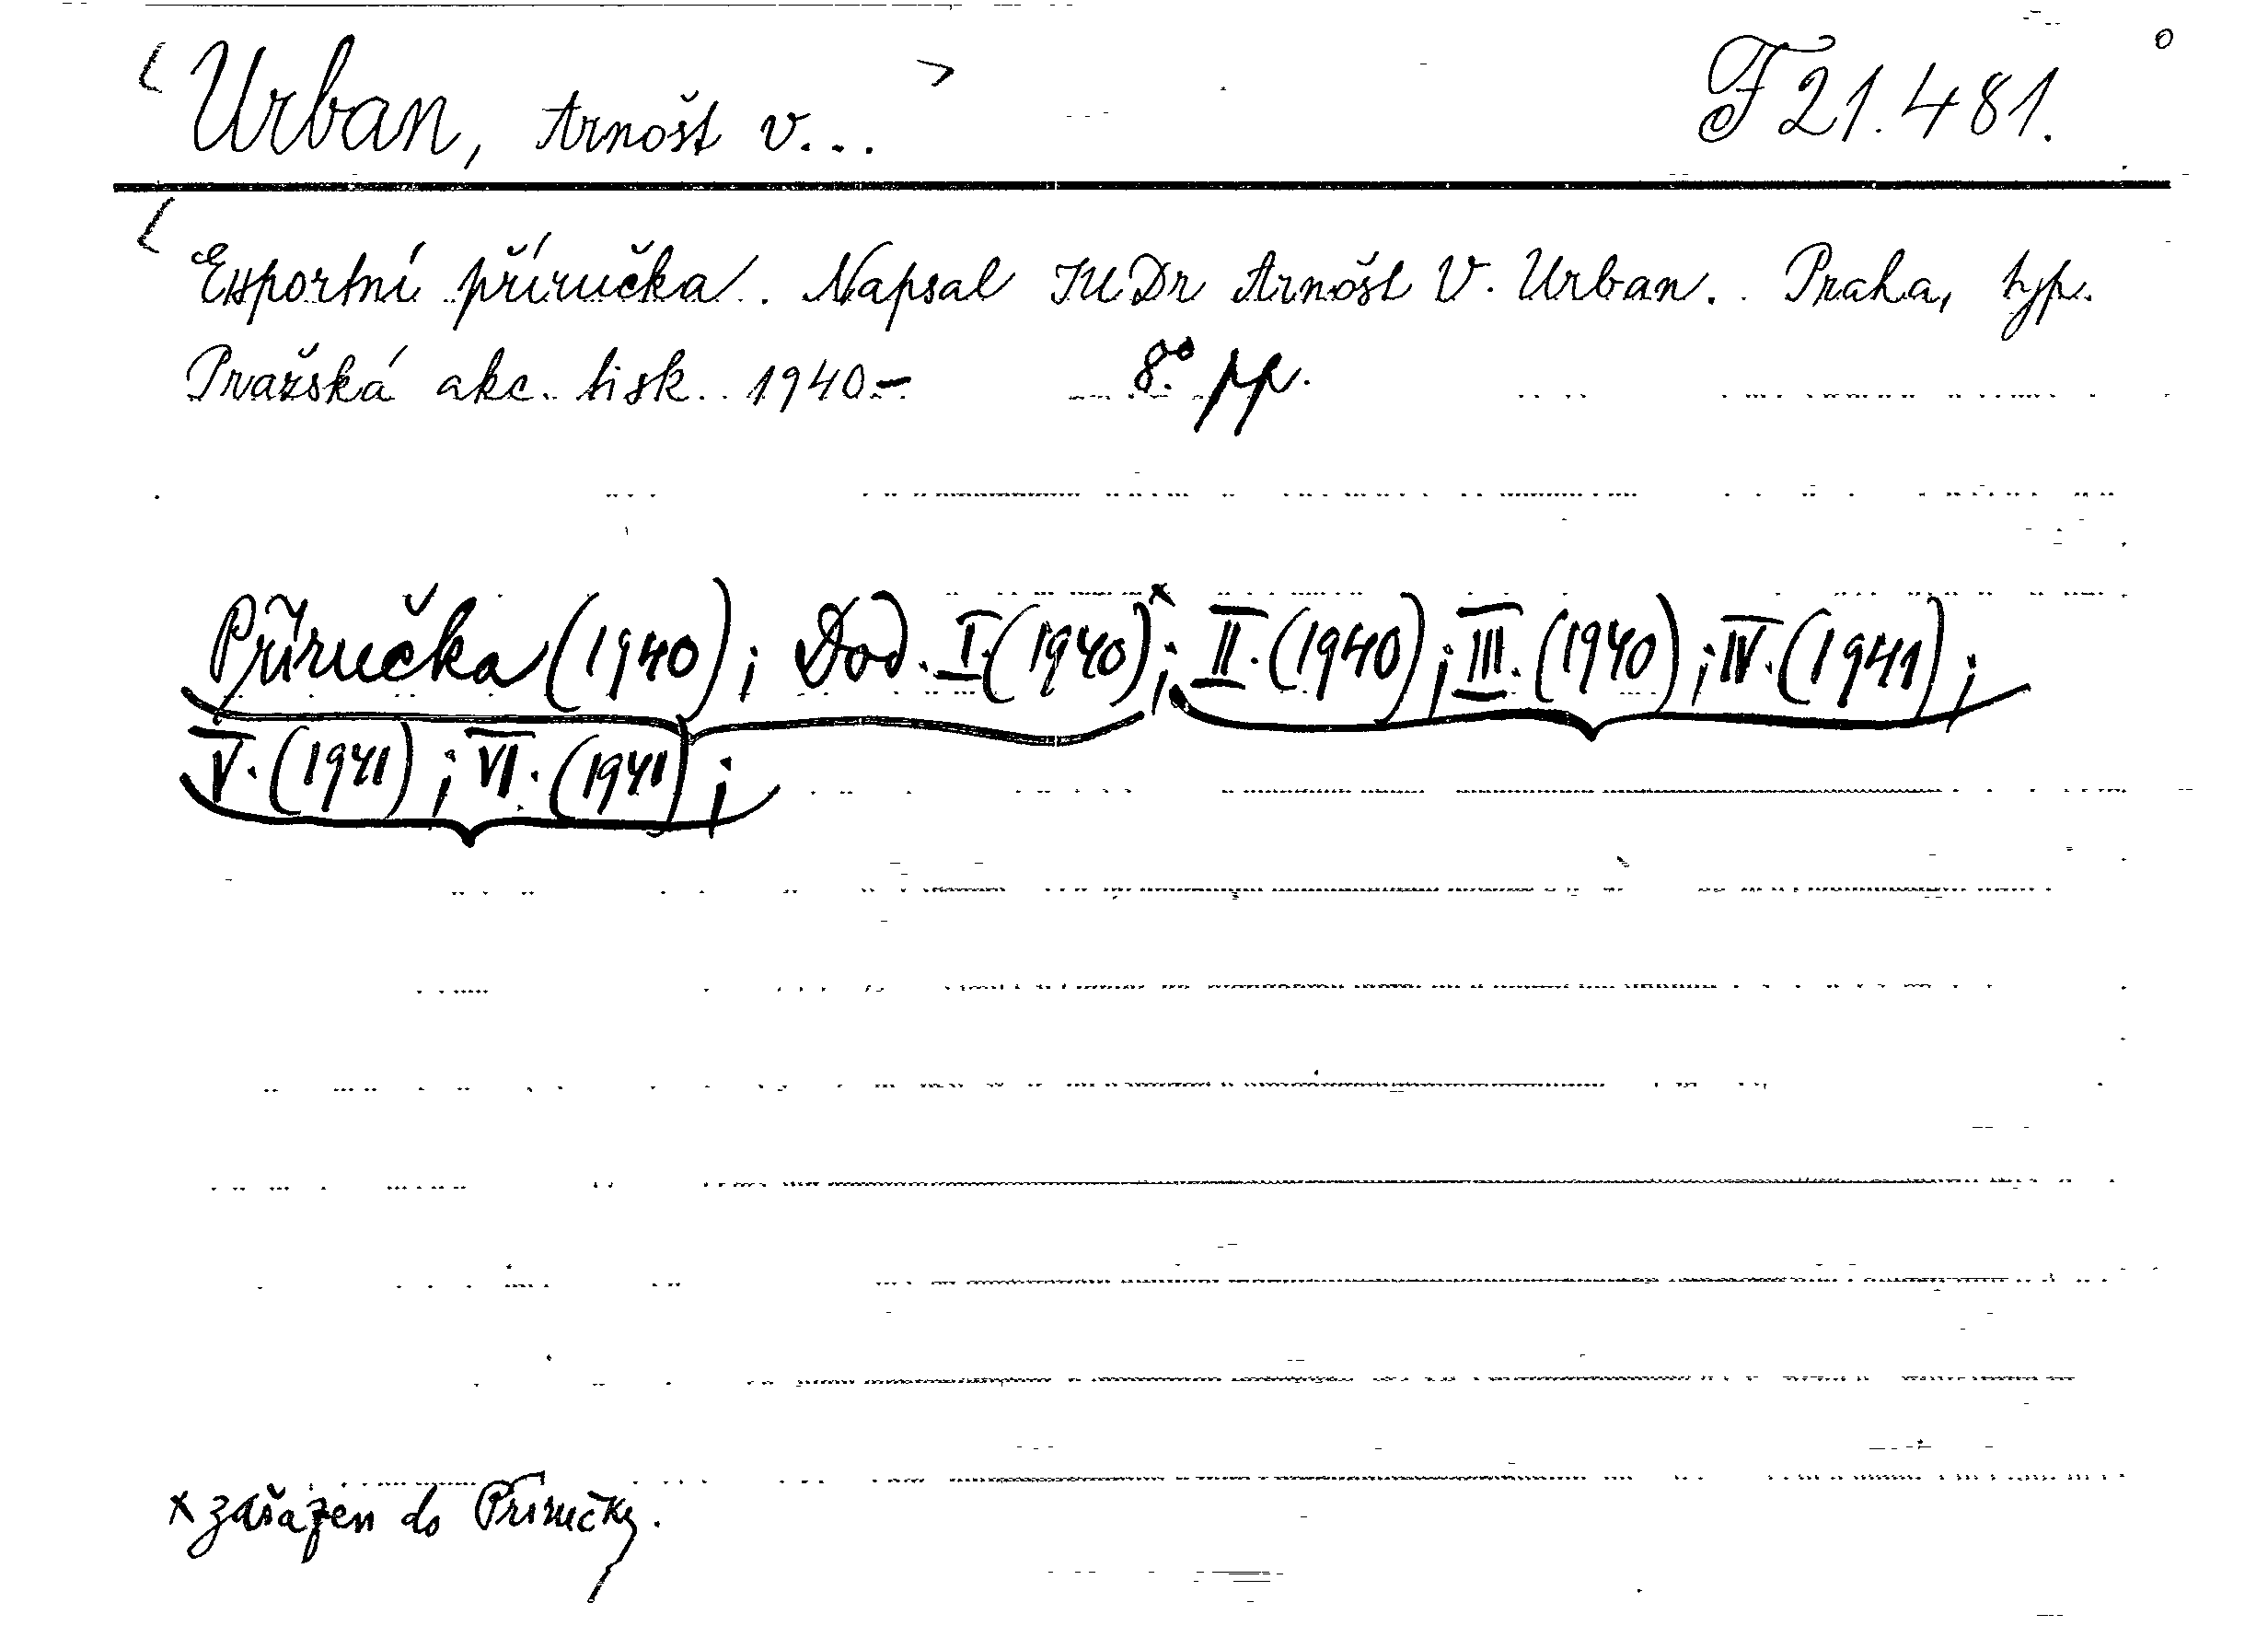 Urban, Arnošt V... F 21.481.
Exportní příručka. Napsal JUDr Arnošt V. Urban. Praha, typ.
Pražská akc. tisk. 1940.- 8.° pp.
Příručka (1940); Dod. I. (1940)ˣ; II. (1940); III. (1940); IV. (1941);
V. (1941); VI. (1941);
x zařazen do Příručky.